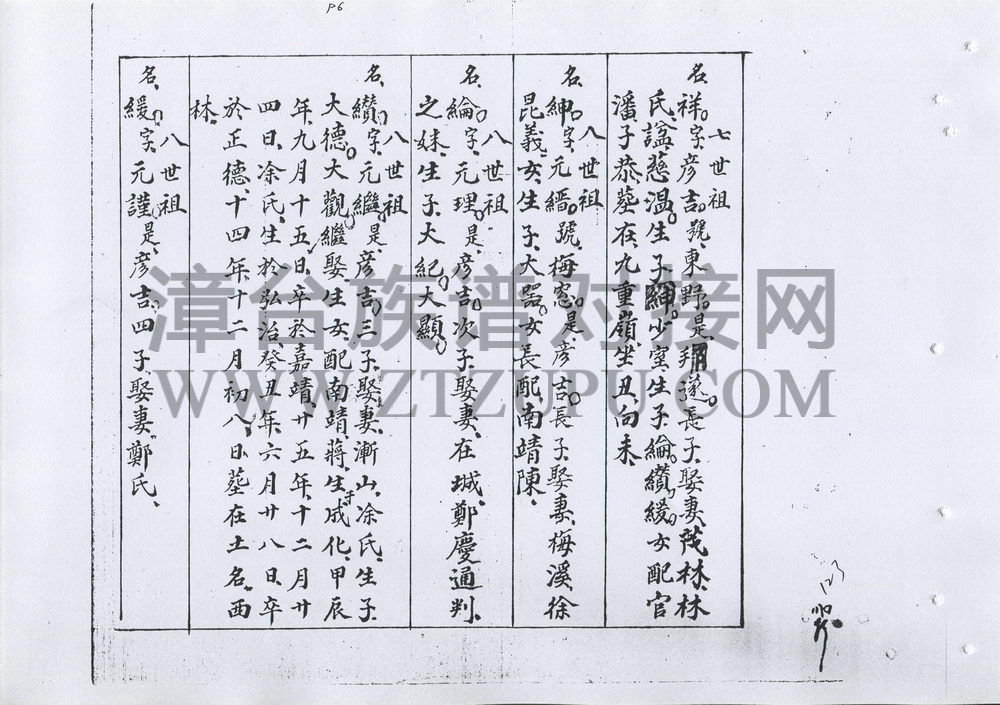 P6
七世祖
名祥字彦吉號東野是翔遂長子娶妻茂林林
氏諡慈温生子紳少室生子綸纘緩女配官
潘子恭塟在九重嶺坐丑向未
八世祖
名紳字元縉號梅窓是彦吉長子娶妻梅溪徐
昆義女生子大器女長配南靖陳
八世祖
名綸字元理是彦吉次子娶妻在城鄭慶通判
之妹生子大紀大顯
八世祖
名纘字元繼是彦吉三子娶妻漸山凃氏生子
大德大觀繼娶生女配南靖蔣生于成化甲辰
年九月十五日卒於嘉靖廿五年十二月廿
四日凃氏生於弘治癸丑年六月廿八日卒
於正德十四年十二月初八日塟在土名西
林
八世祖
名緩字元謹是彦吉四子娶妻鄭氏
漳台族谱对接网
WWW.ZTZUPU.COM